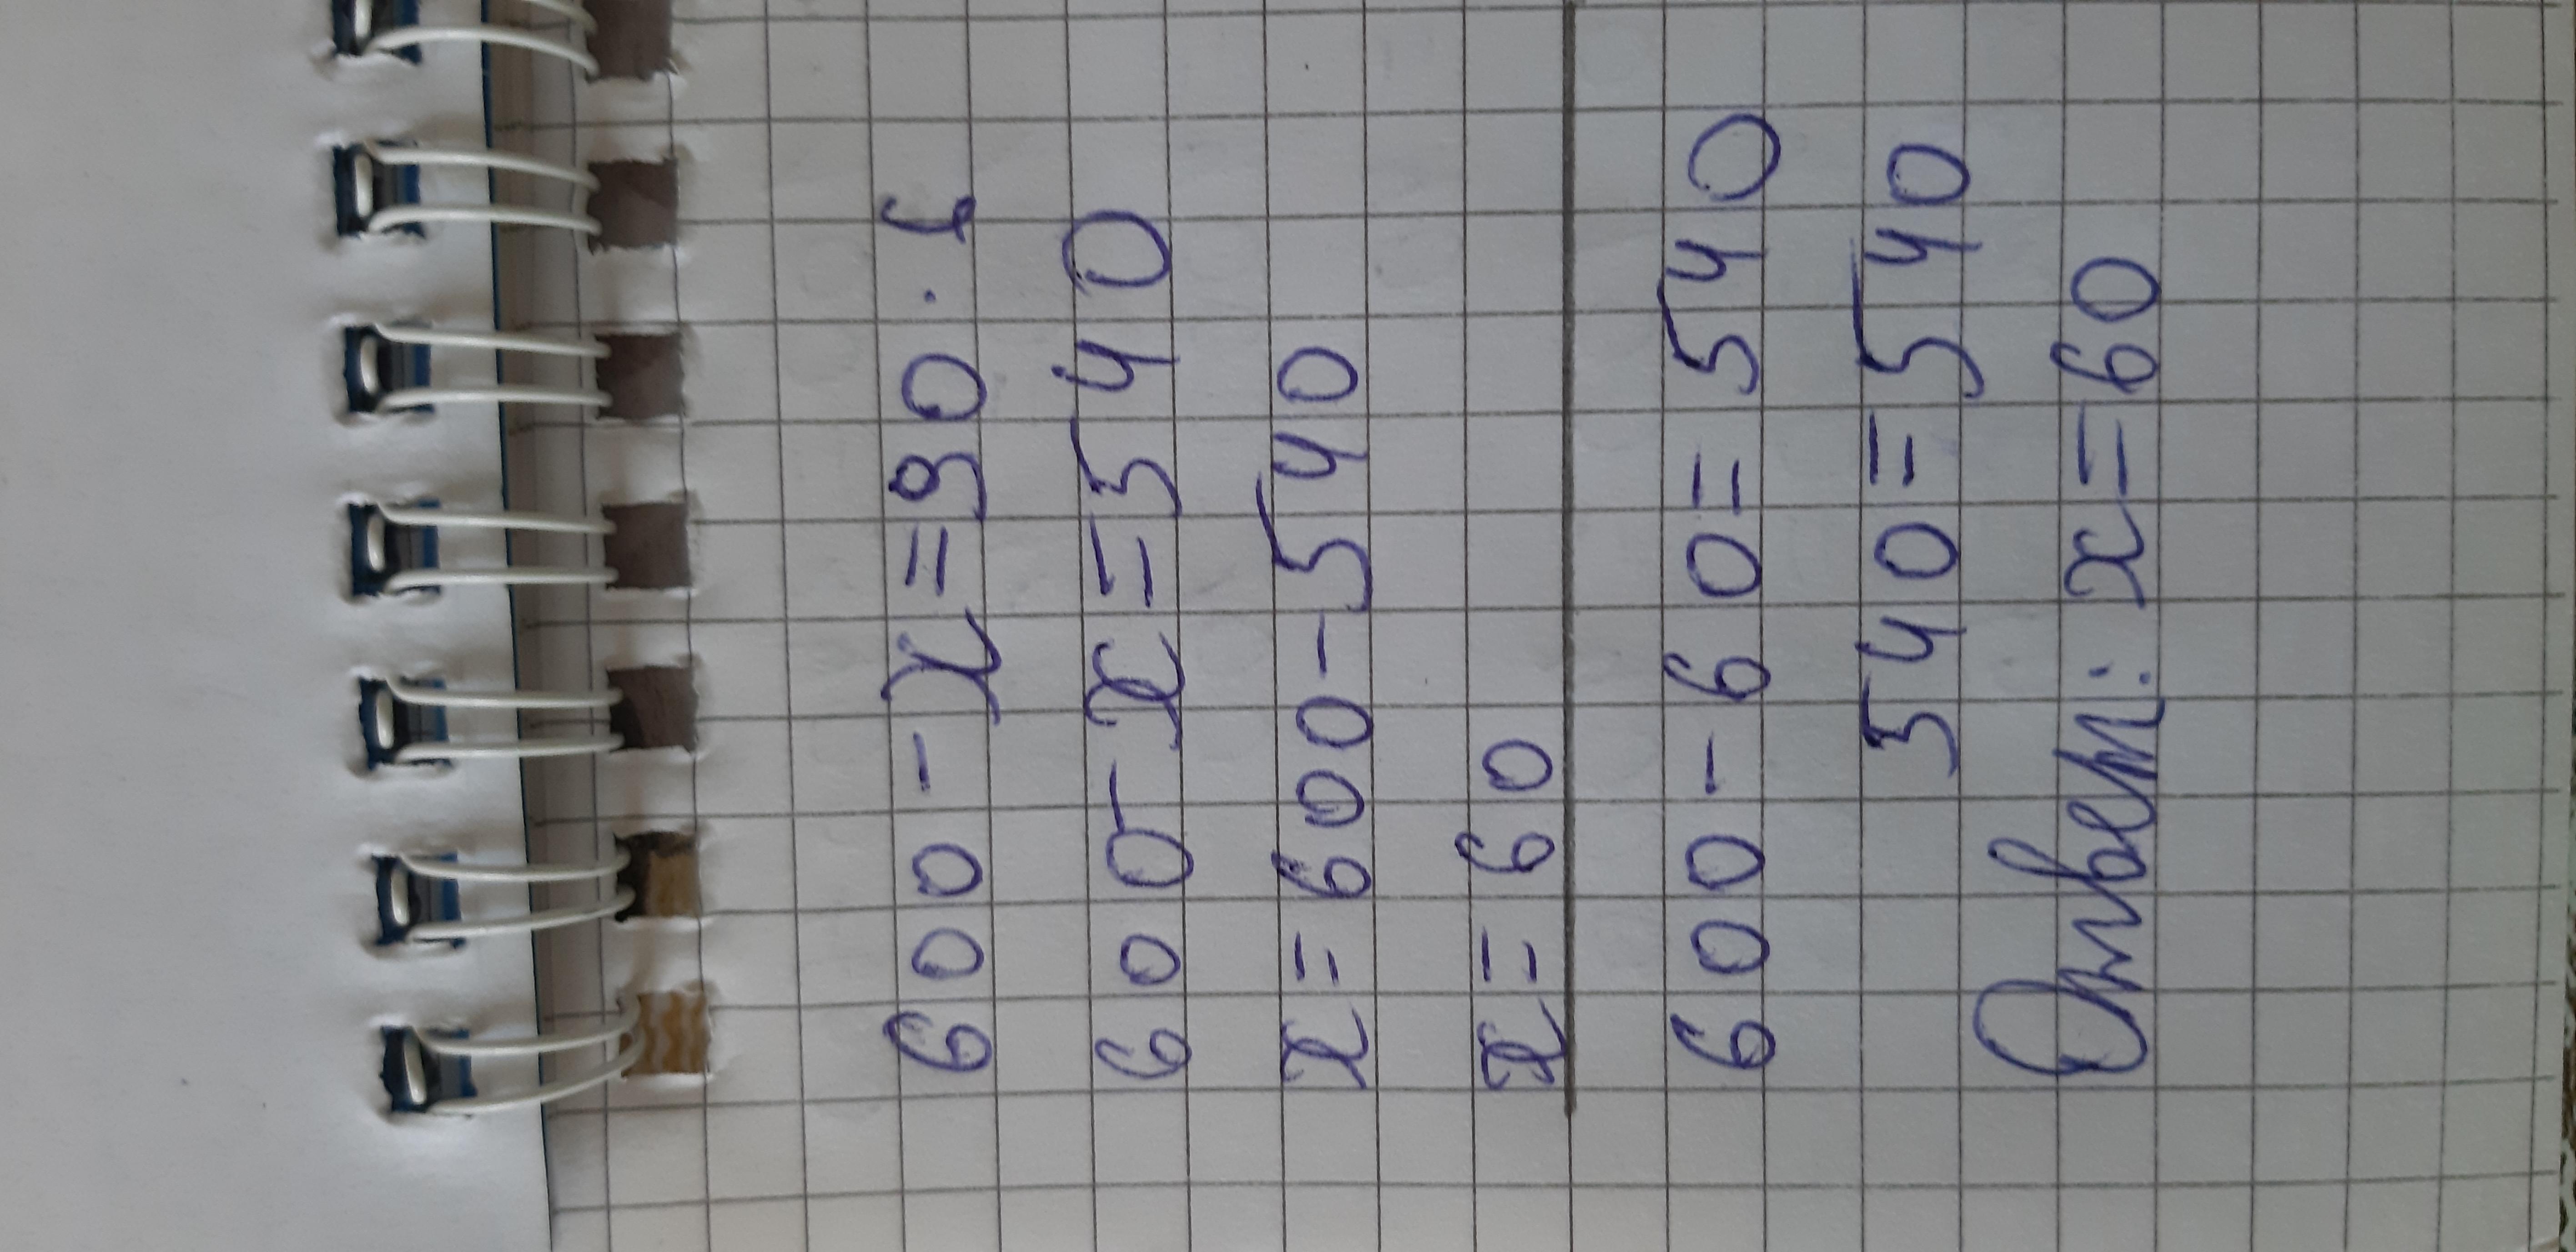 600 - x = 90 · 6
600 - x = 540
x = 600 - 540
x = 60
600 - 60 = 540
540 = 540
Ответ: x = 60